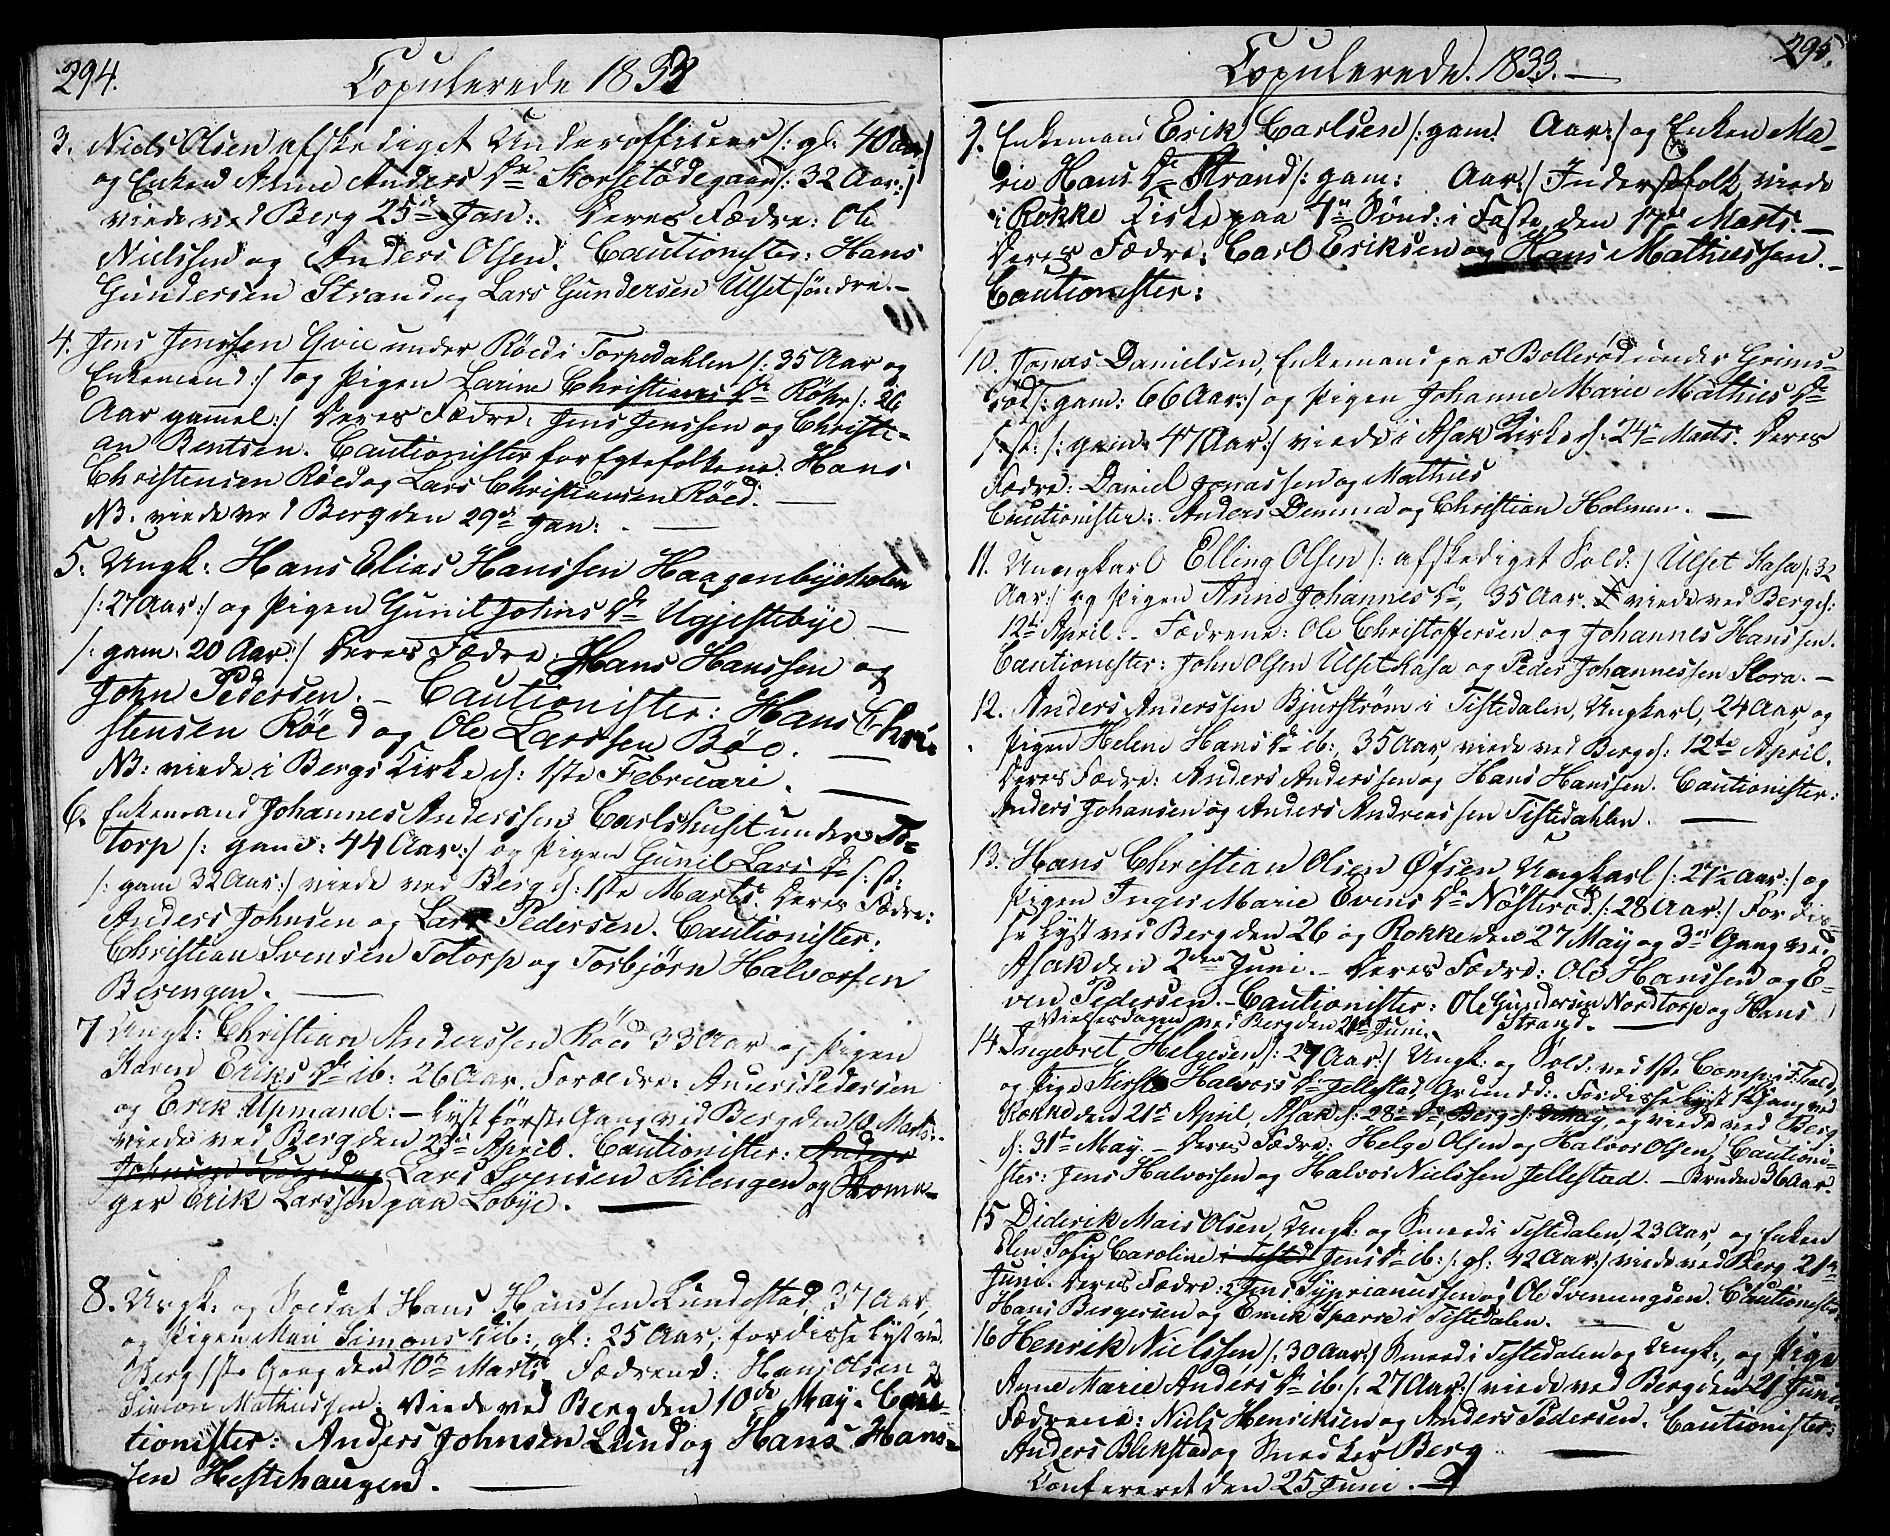 294.
Copulerede 1833
3. Niels Olsen afskediget Underofficeer /: gl: 40 Aar /
og Enken Anne Anders Dr. Korsetødegaard /: 32 Aar :/
viede ved Berg 25de Jan: Deres Fædre: Ole
Nielssen og Anders Olsen. Cautionister: Hans
Gundersen Strand og Lars Gundersen Ulset søndre. –
4. Jens Jenssen Gvie under Røed i Torpedahlen /: 35 Aar og
Enkemand :/ og Pigen Larine Christians Dr Röhr /: 26
Aar gammel :/ Deres Fædre: Jens Jenssen og Christi-
an Bentsen. Cautionister for Egtefolkene: Hans
Christensen Røed og Lars Christiansen Røed. —
NB. viede ved Berg den 29de Jan: . —
5. Ungk: Hans Elias Hanssen Haagenbyeholen
/: 27 Aar :/ og Pigen Gunil Johns Dr Ugjestebye —
/: gam: 20 Aar :/ Deres Fædre: Hans Hanssen og
John Pedersen. – Cautionister: Hans Chri-
stensen Røed og Ole Larssen Bøe. —
NB: viede i Bergs Kirke d: 1ste Februari. —
6. Enkemand Johannes Anderssen Carlshuset under To-
torp /: gam: 44 Aar :/ og Pigen Gunil Lars Dr /: st:
/: gam 32 Aar :/ viede ved Berg d: 1ste Marts. Deres Fædre:
Anders Johnsen og Lars Pedersen. Cautionister:
Christian Svensen Totorp og Torbjörn Halvorsen
Berengen. —
7 Ungk: Christian Anderssen Röed 33 Aar og Pigen
Karen Eriks Dr ib: 26 Aar. Forældre: Anders Pedersen
og Erik Upmand: – Lyst förste Gang ved Berg den 10 Marts.
viede ved Berg den 23de April. Cautionister: Anders
Johnsen Lund og Lars Svensen Stilengen og
ger Erik Larssen paa Lobye. —
8. Ungk: og Soldat Hans Hanssen Lundestad, 37 Aar,
og Pigen Mari Simons D ib:, gl: 25 Aar; for disse lyst ved
Berg 1ste Gang den 10de Marts. Fædrene: Hans Olsen og
Simon Mathiessen. Viede ved Berg den 10de May. Cau-
tionister: Anders Johnsen Lund og Hans Hans-
sen Hestehaugen. —
295.
Copulerede 1833. —
9. Enkemand Erik Carlsen /: gam: Aar :/ og Enken Ma-
rie Hans Dr Strand /: gam: Aar :/ Inderstfolk viede
i Rokke Kirke paa 4de Sønd: i Faste den 17de Marts. —
Deres Fædre: Carl Eriksen og Hans Mathiessen. –
Cautionister:
10. Jonas Danielsen, Enkemand paa Bollerød under Grims-
rød /: gam: 66 Aar :/ og Pigen Johanne Marie Mathies Dr
/: st: /: gam: 47 Aar :/ viede i Asak Kirke d: 24de Marts. Deres
Fædre: Daniel Jonassen og Mathies
Cautionister: Anders Demma og Christian Holmen. —
11. Ungkarl Elling Olsen /: afskediget Sold: / Ulset Kasa /: 32
Aar :/ og Pigen Anne Johannes Dr, 35 Aar. viede ved Berg d:
12te April. – Fædrene: Ole Christoffersen og Johannes Hanssen.
Cautionister: John Olsen Ulset Kasa og Peder Johannessen Flora. –
12. Anders Anderssen Bjurstrøm i Tistedalen, Ungkarl, 24 Aar og
Pigen Helene Hans Dr ib: 35 Aar, viede ved Berg d: 12te April.
Deres Fædre: Anders Anderssen og Hans Hanssen. Cautionister:
Anders Johansen og Anders Andreassen Tistedahlen. —
13. Hans Christian Olsen Øfsen Ungkarl /: 27½ Aar :/ og
Pigen Inger Marie Evens Dr Nösterød /: 28 Aar :/ For dis-
se lyst ved Berg den 26 og Rokke den 27 May og 3die Gang ved
Asak den 2den Juni. – Deres Fædre: Ole Hanssen og E-
ven Pedersen. – Cautionister: Ole Gundersen Nordtorp og Hans
Strand. —
Vielsesdagen ved Berg den 21de Juni.
14 Ingebret Helgesen /: 27 Aar :/ Ungk: og Sold: ved 1ste Comp: i Fredr:,
og Pige Kirste Halvors Dr Jellestad, Grundt:. For disse lyst 1ste Gang ved
Rokke den 21de April, Asak d: 28de Do, Berg d: May, og viede ved Berg
d: 31te May. – Deres Fædre: Helge Olsen og Halvor Olsen. Cautioni-
ster: Jens Halvorsen og Halvor Nielssen Jellestad. – Bruden 36 Aar.
15 Diderik Mais Olsen, Ungk: og Smed i Tistedalen, 23 Aar, og Enken
Elen Sofie Caroline i Tisted Jens Dr ib: /: gl: 42 Aar :/ viede ved Berg 21de
Juni. Deres Fædre: Jens Syprianussen og Ole Svenungsen. Cautionister
Hans Bergersen og Erik Sparre i Tistedalen. —
16 Henrik Nielssen /: 30 Aar :/ Smed i Tistedalen og Ungk:, og Pige
Anne Marie Anders Dr ib: /: 27 Aar :/ viede ved Berg den 21 Juni
Fædrene: Niels Henriksen og Anders Pedersen. Cautionister:
Anders Blekstad og Smed Ker Berg. —
Confereret den 25 Juni. —